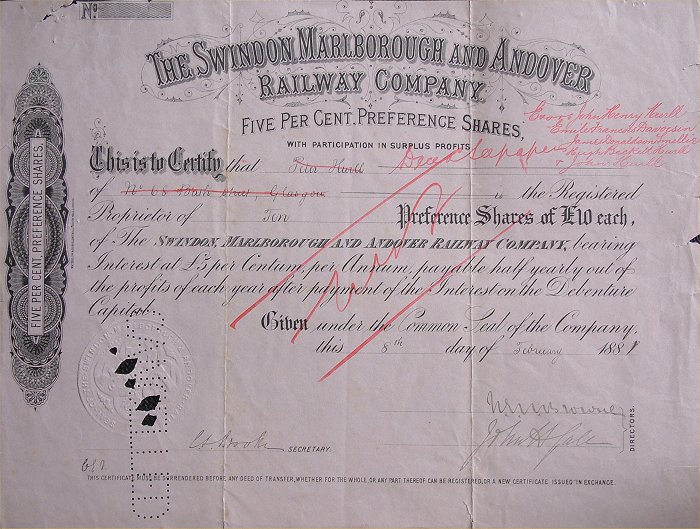 No
THE SWINDON MARLBOROUGH AND ANDOVER
RAILWAY COMPANY.
FIVE PER CENT. PREFERENCE SHARES,
WITH PARTICIPATION IN SURPLUS PROFITS.
George John Henry
Emile Francois
James Donaldson
Hugh
& John
This is to Certify that Peter Decd
of No 68 Street, Glasgow is the Registered
Proprietor of Ten Preference Shares of £10 each,
of The SWINDON, MARLBOROUGH AND ANDOVER RAILWAY COMPANY, bearing
Interest at £5 per Centum, per Annum, payable half yearly out of
the profits of each year after payment of the Interest on the Debenture
Capital.
Given under the Common Seal of the Company,
this 8th day of February 1881
FIVE PER CENT. PREFERENCE SHARES.
DIRECTORS.
John H Gale
Brooke SECRETARY.
THIS CERTIFICATE MUST BE SURRENDERED BEFORE ANY DEED OF TRANSFER, WHETHER FOR THE WHOLE, OR ANY PART THEREOF CAN BE REGISTERED, OR A NEW CERTIFICATE ISSUED IN EXCHANGE.